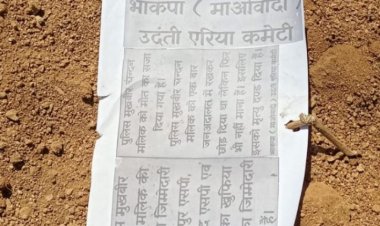 भाकपा ( माओवादी )
उदंती एरिया कमेटी
पुलिस मुखबीर चन्दन
मलिक को मौत का सजा
दिया गया है।
पुलिस मुखबीर चन्दन
मलिक को एक बार
जनअदालत में रखकर
छोड दिया था लेकिन फिर
भी नहीं माना है। इसलिए
इसको मृत्यु दण्ड दिया है।
मुखबीर
मलिक की
जिम्मेदारी
पुर एसपी,
एसपी एवं
का खुफिया
जिम्मेदारी
है।